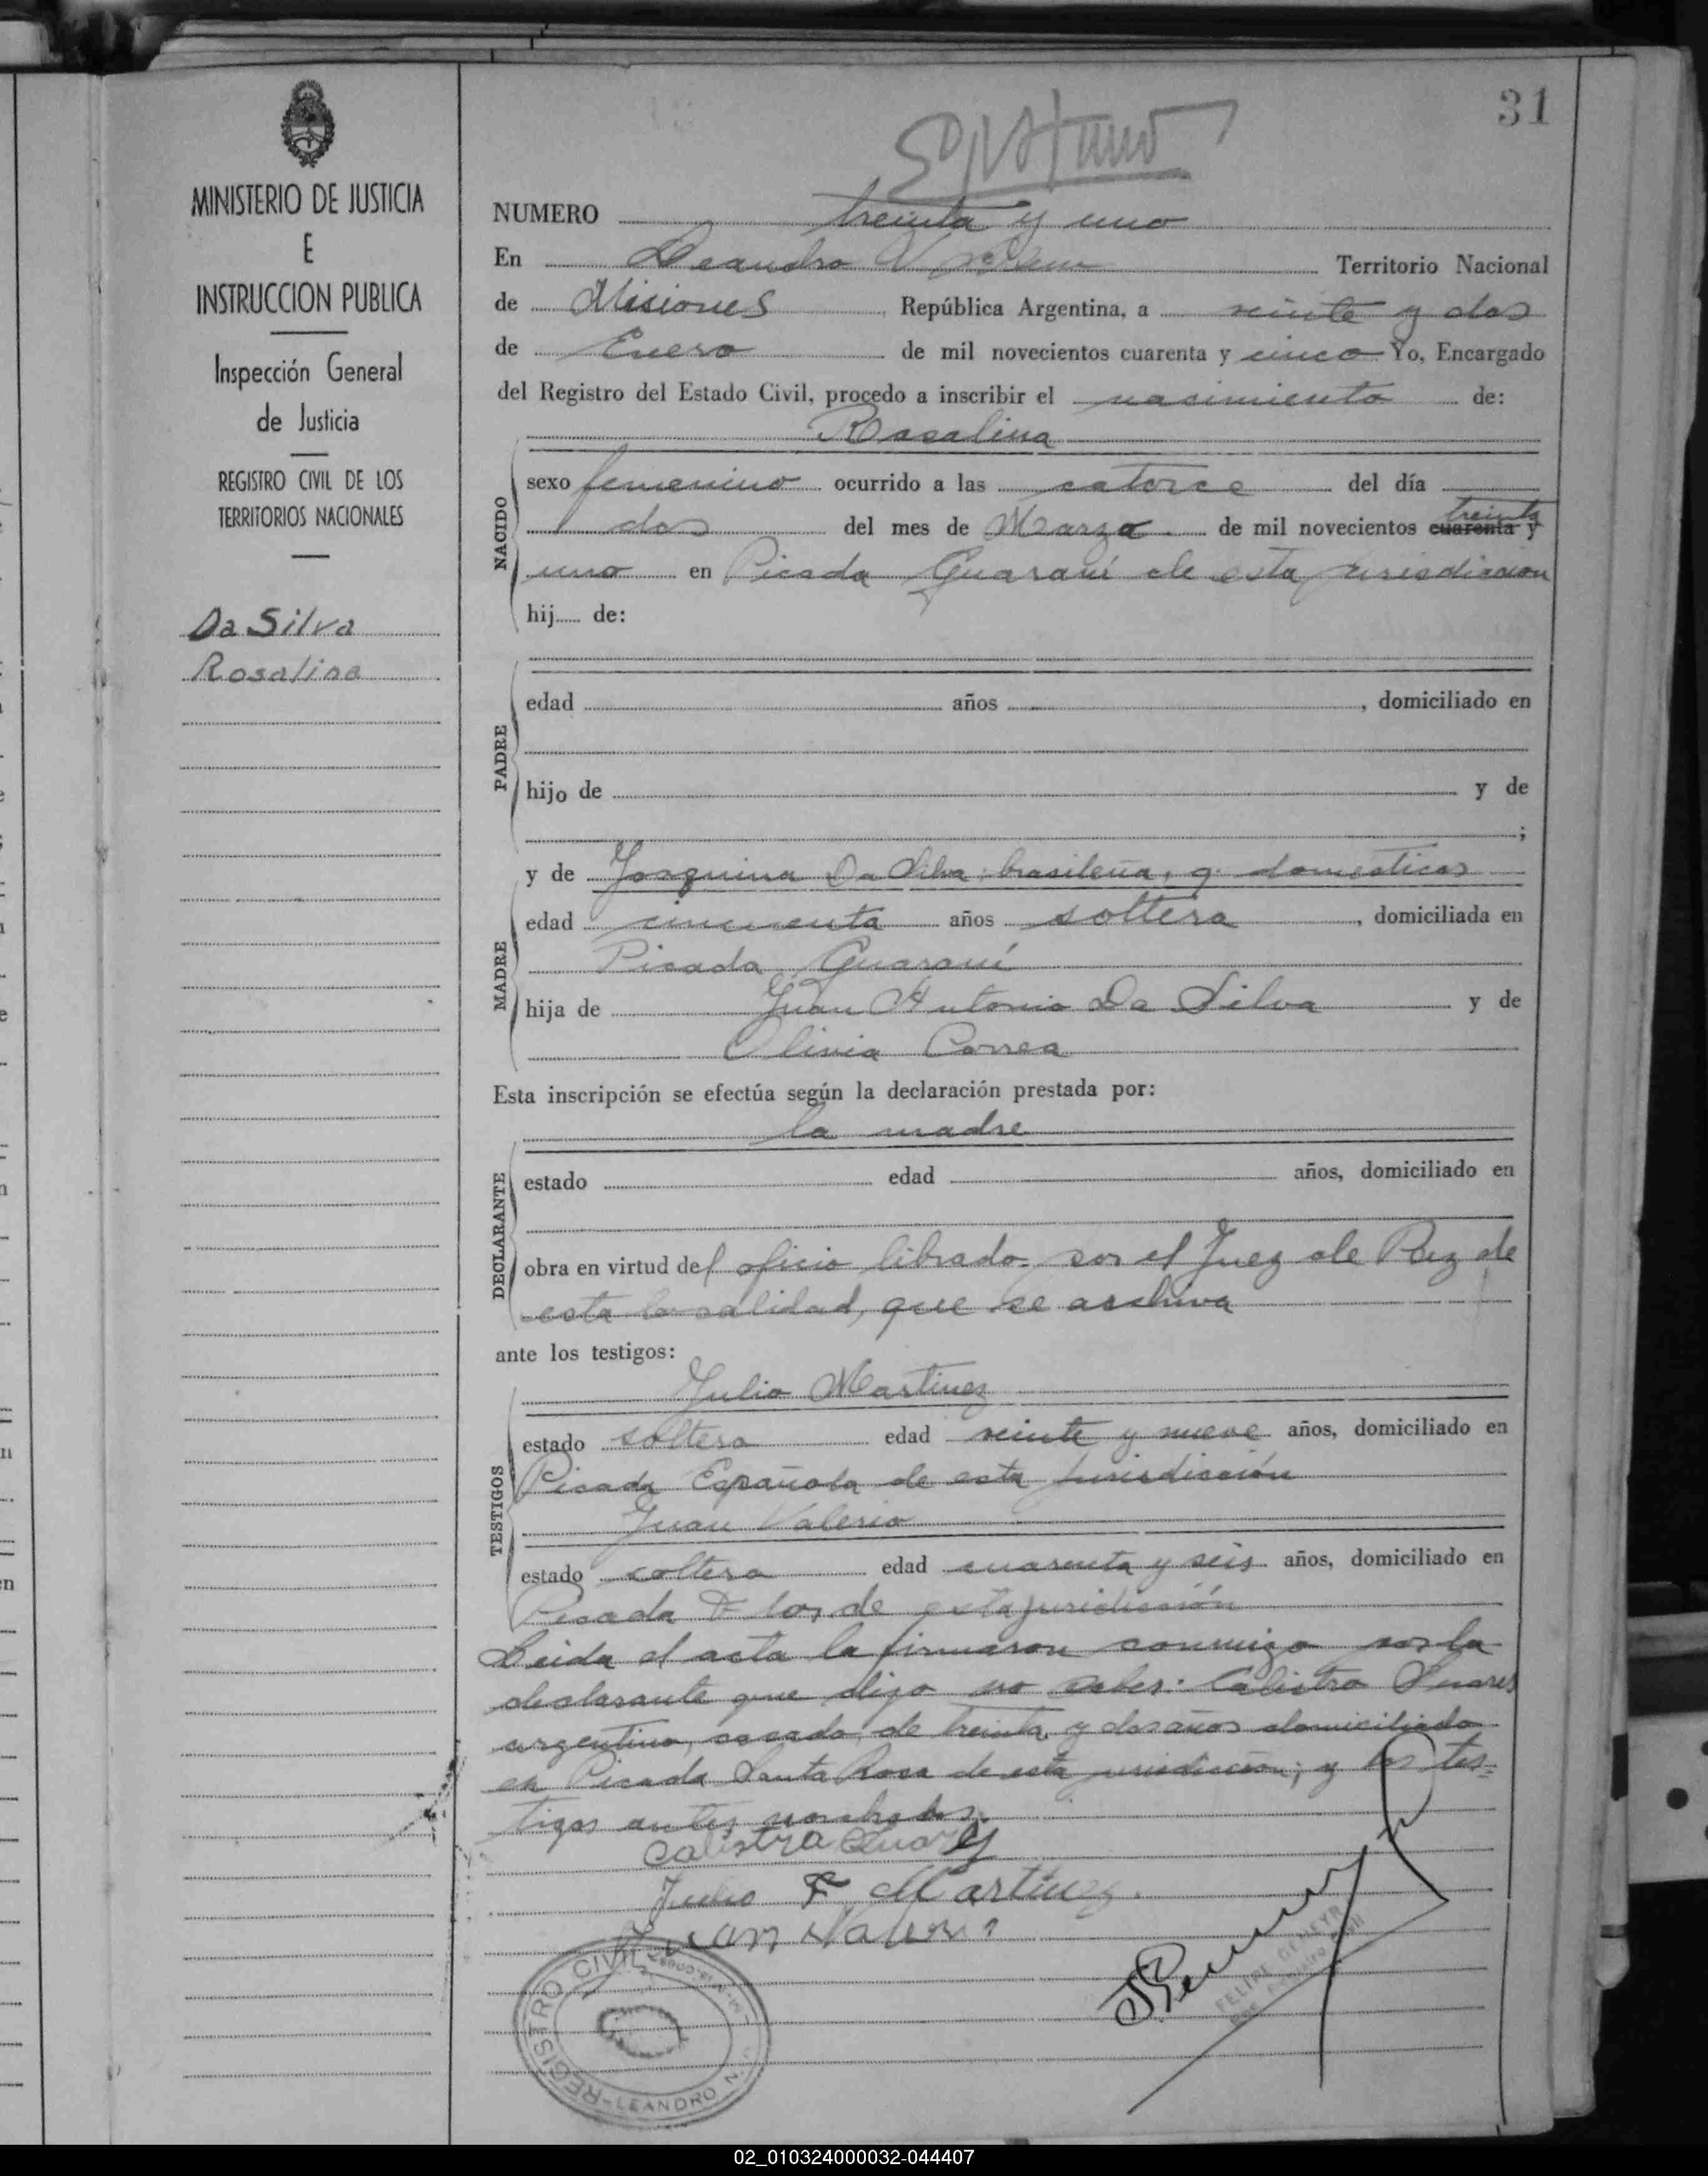 31
NUMERO treinta y uno
En Leandro N Alem Territorio Nacional
de Misiones República Argentina, a veinte y dos
de Enero de mil novecientos cuarenta y cinco Yo, Encargado
del Registro del Estado Civil, procedo a inscribir el nacimiento de:
Rosalina
NACIDO
sexo femenino ocurrido a las catorce del día
dos del mes de Marzo de mil novecientos cuarenta y treinta y
uno en Picada Guaraní de esta jurisdiccion
hij de:
PADRE
edad años , domiciliado en
hijo de y de
;
y de Joaquina Da Silva, brasileña, q. domesticos
MADRE
edad cincuenta años soltera , domiciliada en
Picada Guaraní
hija de Juan Antonio Da Silva y de
Olivia Correa
Esta inscripción se efectúa según la declaración prestada por:
la madre
DECLARANTE
estado edad años, domiciliado en
obra en virtud del oficio librado por el Juez de Paz de
esta localidad, que se archiva
ante los testigos:
TESTIGOS
Julio Martinez
estado soltero edad veinte y nueve años, domiciliado en
Picada Española de esta jurisdicción
Juan Valerio
estado soltero edad cuarenta y seis años, domiciliado en
Picada de esta jurisdicción
Leida el acta la firmaron conmigo por la
declarante que dijo no saber: Calistro Suares
argentino, casado, de treinta y dos años domiciliado
en Picada Santa Rosa de esta jurisdicción; y los tes=
tigos antes nombrados.
Calistra Suarez
Julio F Martinez.
Juan Valerio
REGISTRO CIVIL
LEANDRO N.
MINISTERIO DE JUSTICIA
E
INSTRUCCION PUBLICA
Inspección General
de Justicia
REGISTRO CIVIL DE LOS
TERRITORIOS NACIONALES
Da Silva
Rosalina
02_010324000032-044407